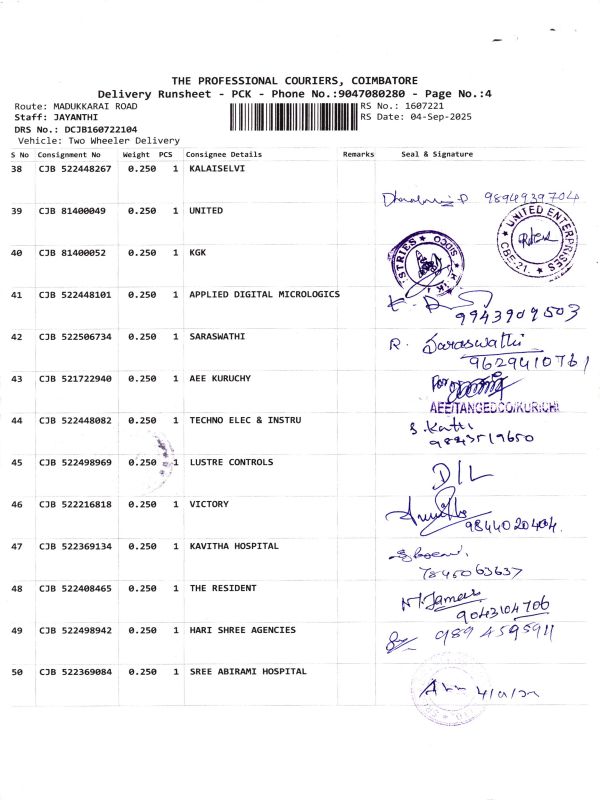 THE PROFESSIONAL COURIERS, COIMBATORE
Delivery Runsheet - PCK - Phone No.:9047080280 - Page No.:4
Route: MADUKKARAI ROAD RS No.: 1607221
Staff: JAYANTHI RS Date: 04-Sep-2025
DRS No.: DCJB160722104
Vehicle: Two Wheeler Delivery
S No Consignment No Weight PCS Consignee Details Remarks Seal & Signature
38 CJB 522448267 0.250 1 KALAISELVI
9894939704
39 CJB 81400049 0.250 1 UNITED
UNITED ENTERPRISES ★ CBE-21. ★
40 CJB 81400052 0.250 1 KGK
STRIES ★ SIDCO ★
41 CJB 522448101 0.250 1 APPLIED DIGITAL MICROLOGICS
9943909503
42 CJB 522506734 0.250 1 SARASWATHI R. Saraswathi
9629410761
43 CJB 521722940 0.250 1 AEE KURUCHY For
AEE/TANGEDCO/KURICHI
44 CJB 522448082 0.250 1 TECHNO ELEC & INSTRU S. Kathi
9843519650
45 CJB 522498969 0.250 1 LUSTRE CONTROLS D/L
46 CJB 522216818 0.250 1 VICTORY
9844020404.
47 CJB 522369134 0.250 1 KAVITHA HOSPITAL
7845063637
48 CJB 522408465 0.250 1 THE RESIDENT
9043104706
49 CJB 522498942 0.250 1 HARI SHREE AGENCIES 9894595911
50 CJB 522369084 0.250 1 SREE ABIRAMI HOSPITAL